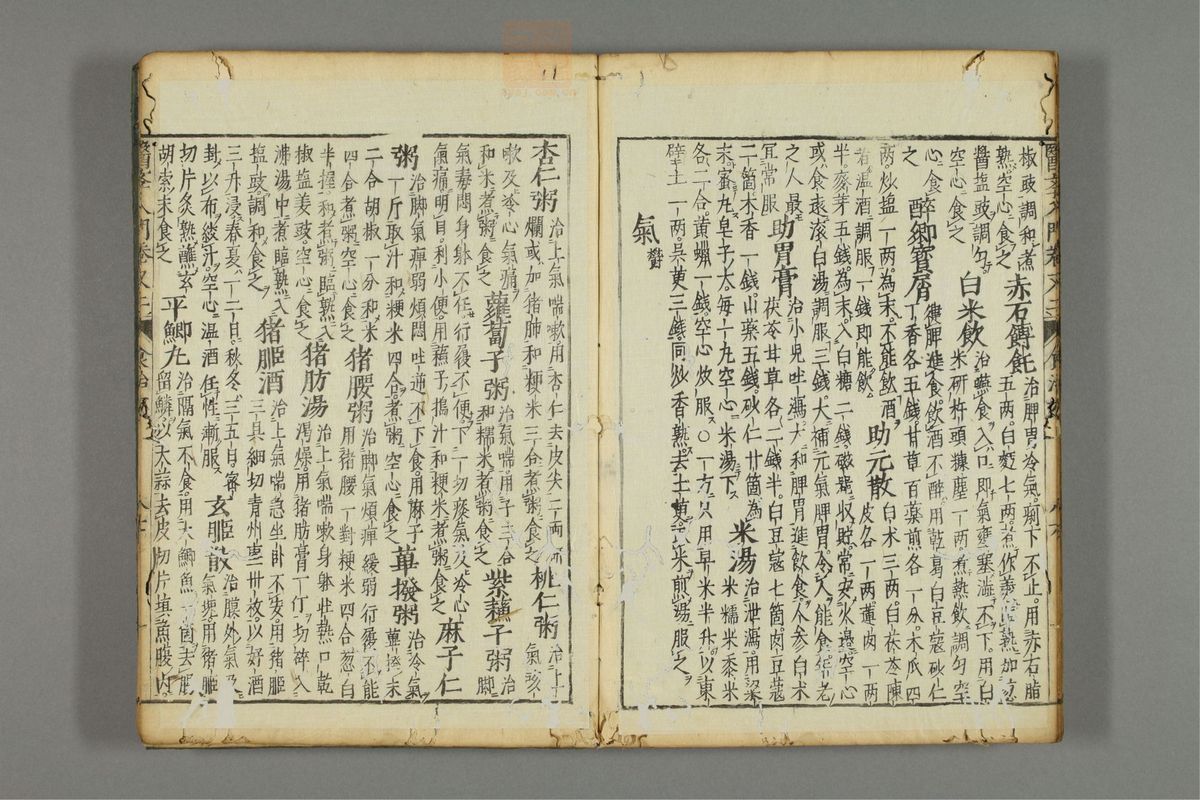 椒豉調和煮
熟空心食之 赤石餺飥 治脾胃冷氣痢下不止用赤石脂
五兩白麪七兩煮作羹熟加
醬塩豉調勻
空心食之 白米飲 治嚥食入口即氣壅塞澁不下用白
米研杵頭糠塵一兩煮熟飲調勻空
心食之 醉鄉寶屑 健脾進食飲酒不醉用乾葛白豆蔻砂仁
丁香各五錢甘草百藥煎各一分木瓜四
兩炒塩一兩為末不能飲酒
者溫酒調服一錢即能飲 助元散 白朮三兩白茯苓陳
皮各一兩蓮肉一兩
半麥芽五錢為末入白糖二錢磁器收貯常安火邊空心
或食遠滾白湯調服三錢大補元氣脾胃冷人能食年老
之人最
宜常服 助胃膏 治小兒吐瀉大和脾胃進飲食人參白朮
茯苓甘草各二錢半白豆蔻七箇肉豆蔻
二箇木香一錢山藥五錢砂仁廿箇為
末蜜丸皂子大每一丸空心米湯下 米湯 治泄瀉用
米糯米黍米
各二合黃蠟一錢空心炒服〇一方只用早米半升以東
壁土一兩吳茰三錢同炒香熟去土茰取米煎湯服之
氣鬱
杏仁粥 治上氣喘嗽用杏仁去皮尖二兩研
爛或加猪肺和粳米三合煮粥食之 桃仁粥 治上
氣咳
嗽及冷心氣痛
和米煮粥食 蘿蔔子粥 治氣喘用子三合
和糯米煮粥食 紫蘇子粥 治
脚
氣毒悶身躰不任行履不便下一切痰氣及冷心
氣痛明目利小便用蘇子搗汁和粳米煮粥食之 麻子仁
粥 治脚氣痺弱煩悶吐逆不下食用麻子
一斤取汁和粳米四合煮粥空心食之 蓽撥粥 治冷氣
蓽撥末
二合胡椒一分和米
四合煮粥空心食之 猪腰粥 治脚氣煩痺緩弱行履不能
用猪腰一對粳米四合葱白
半握和煮粥臨熟入
椒塩姜豉空心食之 猪肪湯 治上氣喘嗽身躰壯熱口乾
渴燥用猪肪膏一斤切碎入
沸湯中煮臨熟入
塩豉調和食之 猪脏酒 治上氣喘急坐臥不安用猪脏
三具細切青州棗卅枚以好酒
三升浸春夏一二日秋冬三五日密
封以布絞汁空心溫酒任性漸服 玄脏散 治膜外氣及
氣塊用猪脏
切片炙熟蘸玄
胡索末食之 平鯽丸 治膈氣不食用大鯽魚一箇去腸
留鱗以大蒜去皮切片填魚腹內